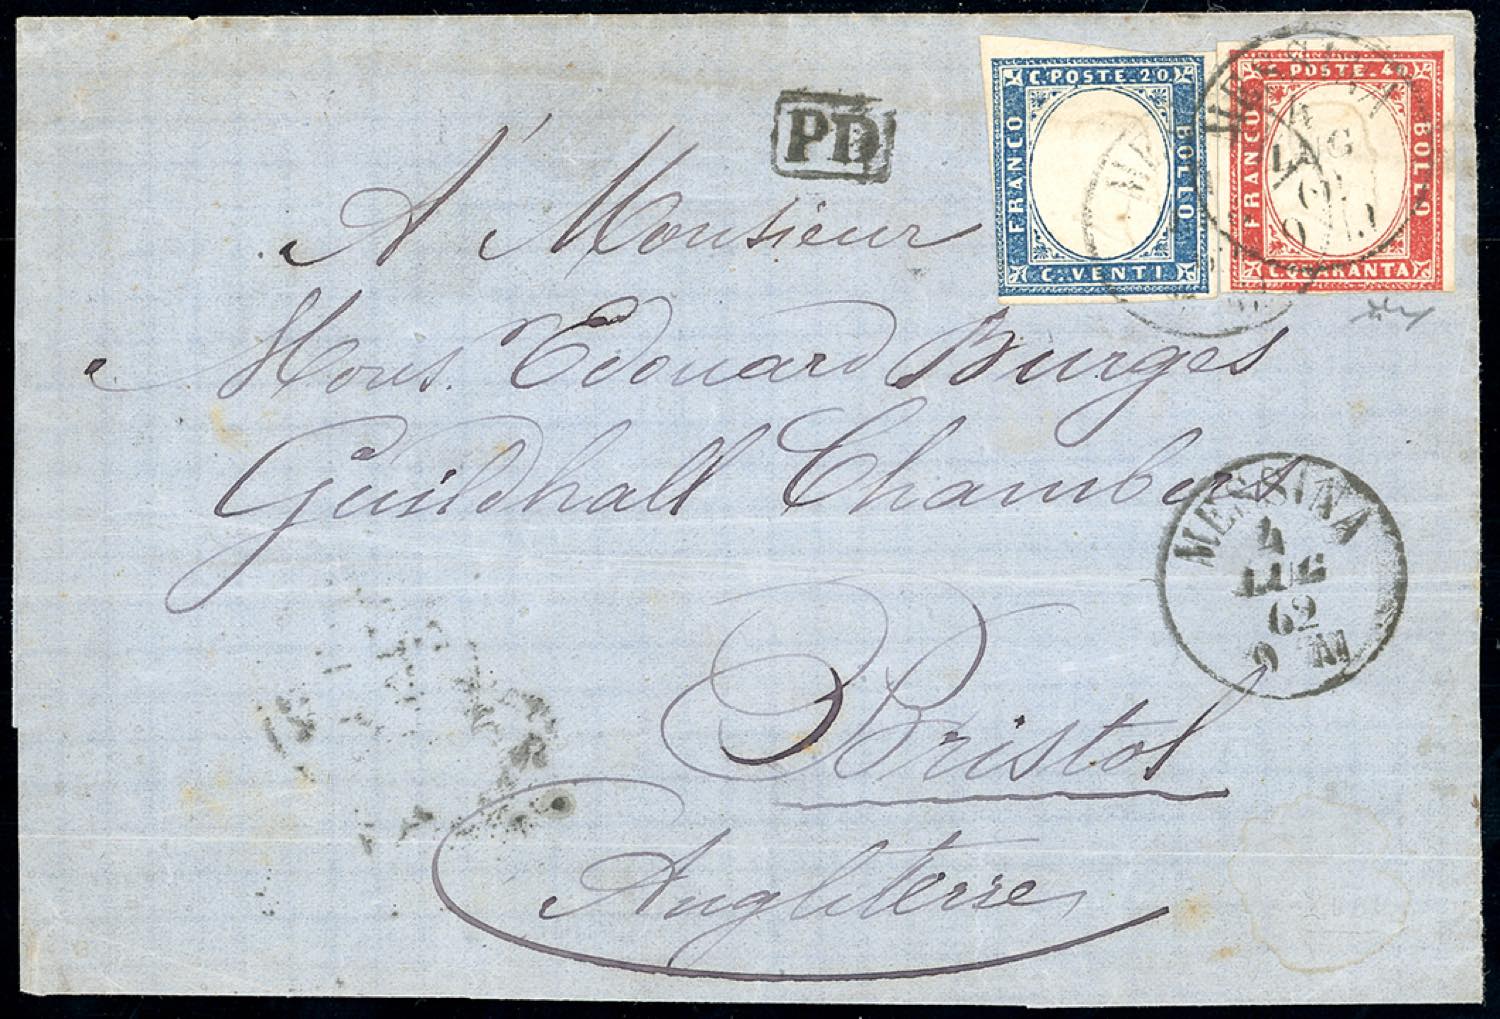 PD
C. POSTE. 20
FRANCO
BOLLO
C. VENTI
POSTE. 40
FRANCO
BOLLO
C. QUARANTA
MESSINA
4
LUG
62
9 M
A Monsieur
Mons. Edouard Burges
Guildhall Chambers
MESSINA
4
LUG
62
9 M
Bristol
Angleterre